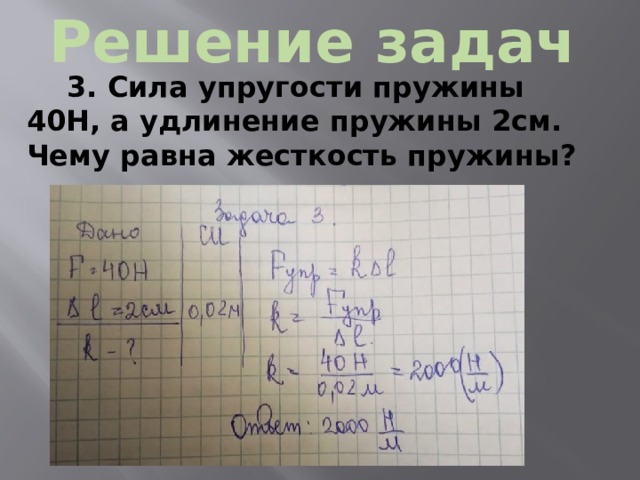 Решение задач
3. Сила упругости пружины
40Н, а удлинение пружины 2см.
Чему равна жесткость пружины?
Задача 3.
Дано СИ
F = 40Н
Δl = 2см 0,02м
k - ?
Fупр = kΔl
k = Fупр / Δl.
k = 40 Н / 0,02 м = 2000 (Н/м)
Ответ: 2000 Н/м